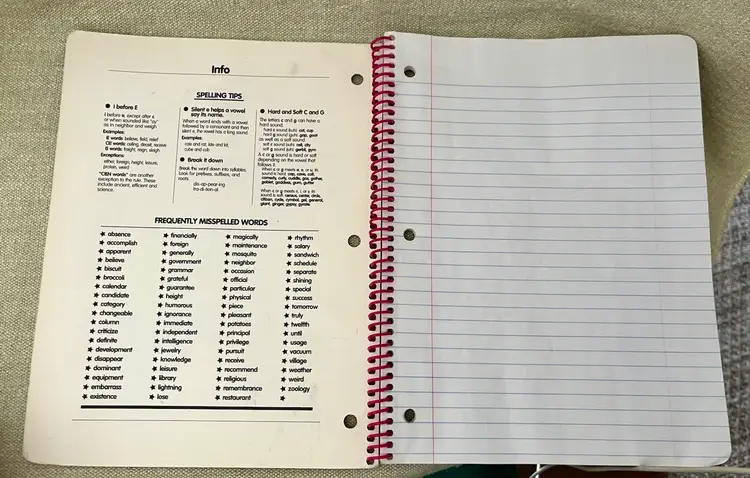 Info
SPELLING TIPS
I before E
I before e, except after c
or when sounded like "ay"
as in neighbor and weigh
Examples:
IE words: believe, field, relief
CEI words: ceiling, deceit, receive
EI words: freight, reign, sleigh
Exceptions:
either, foreign, height, leisure,
protein, weird
"CIEN words" are another
exception to the rule. These
include ancient, efficient and
science.
Silent e helps a vowel
say its name.
When a word ends with a vowel
followed by a consonant and then
silent e, the vowel has a long sound.
Examples:
rate and rat, kite and kit,
cube and cub
Break it down
Break the word down into syllables.
Look for prefixes, suffixes, and
roots.
dis-ap-pear-ing
tra-di-tion-al
Hard and Soft C and G
The letters c and g can have a
hard sound:
hard c sound (kuh): cat, cup
hard g sound (guh): gap, goat
as well as a soft sound:
soft c sound (suh): cell, city
soft g sound (juh): gerbil, gym
A c or g sound is hard or soft
depending on the vowel that
follows it.
FREQUENTLY MISSPELLED WORDS
★ absence
★ accomplish
★ apparent
★ believe
★ biscuit
★ broccoli
★ calendar
★ candidate
★ category
★ changeable
★ column
★ criticize
★ definite
★ development
★ disappear
★ dominant
★ equipment
★ embarrass
★ existence
★ financially
★ foreign
★ generally
★ government
★ grammar
★ grateful
★ guarantee
★ height
★ humorous
★ ignorance
★ immediate
★ independent
★ intelligence
★ jewelry
★ knowledge
★ leisure
★ library
★ lightning
★ lose
★ magically
★ maintenance
★ mosquito
★ neighbor
★ occasion
★ official
★ particular
★ physical
★ piece
★ pleasant
★ potatoes
★ principal
★ privilege
★ pursuit
★ receive
★ recommend
★ religious
★ remembrance
★ restaurant
★ rhythm
★ salary
★ sandwich
★ schedule
★ separate
★ shining
★ special
★ success
★ tomorrow
★ truly
★ twelfth
★ until
★ usage
★ vacuum
★ village
★ weather
★ weird
★ zoology
★